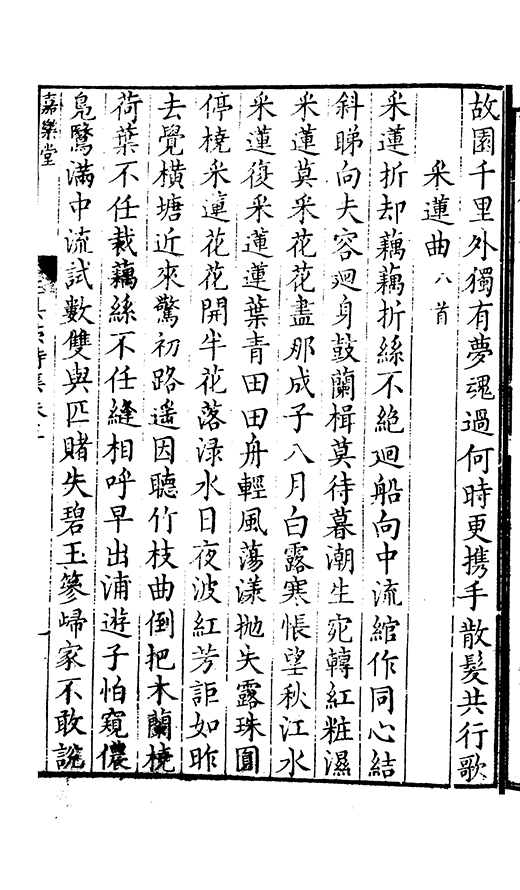 故園千里外獨有夢魂過何時更携手散髮共行歌
采蓮曲八首
采蓮折却藕藕折絲不絶迴船向中流綰作同心結
斜睇向夫容迴身鼓蘭楫莫待暮潮生宛轉紅粧濕
采蓮莫采花花盡那成子八月白露寒悵望秋江水
采蓮復采蓮蓮葉青田田舟輕風蕩漾抛失露珠圓
停橈采蓮花花開半花落渌水日夜波紅芳詎如昨
去覺橫塘近來驚初路遥因聽竹枝曲倒把木蘭橈
荷葉不任裁藕絲不任縫相呼早出浦遊子怕窺儂
鳬鷖滿中流試數雙與匹賭失碧玉簪歸家不敢說
嘉樂堂